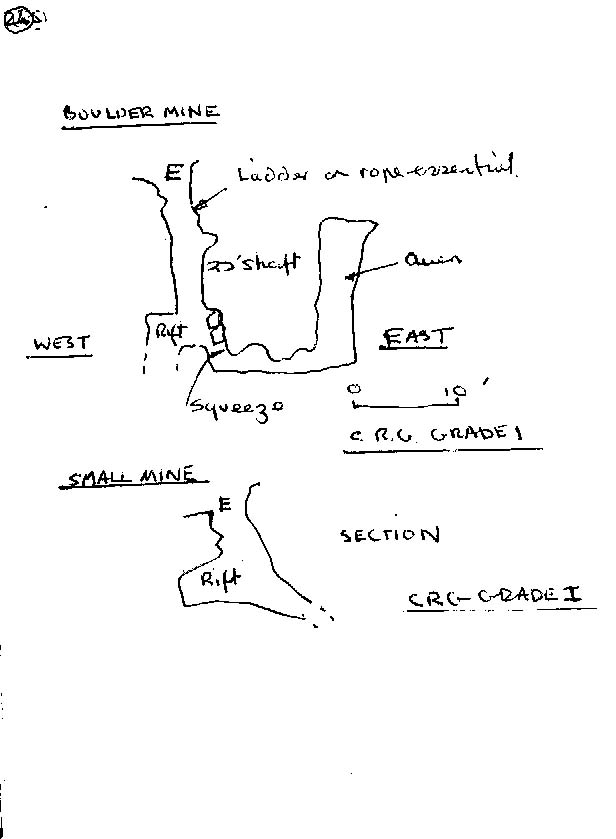 BOULDER MINE
E
Ladder or rope essential.
20' shaft
Aven
Rift
WEST
EAST
Squeeze
0 10'
C.R.G. GRADE 1
SMALL MINE
E
SECTION
Rift
C.R.G GRADE I